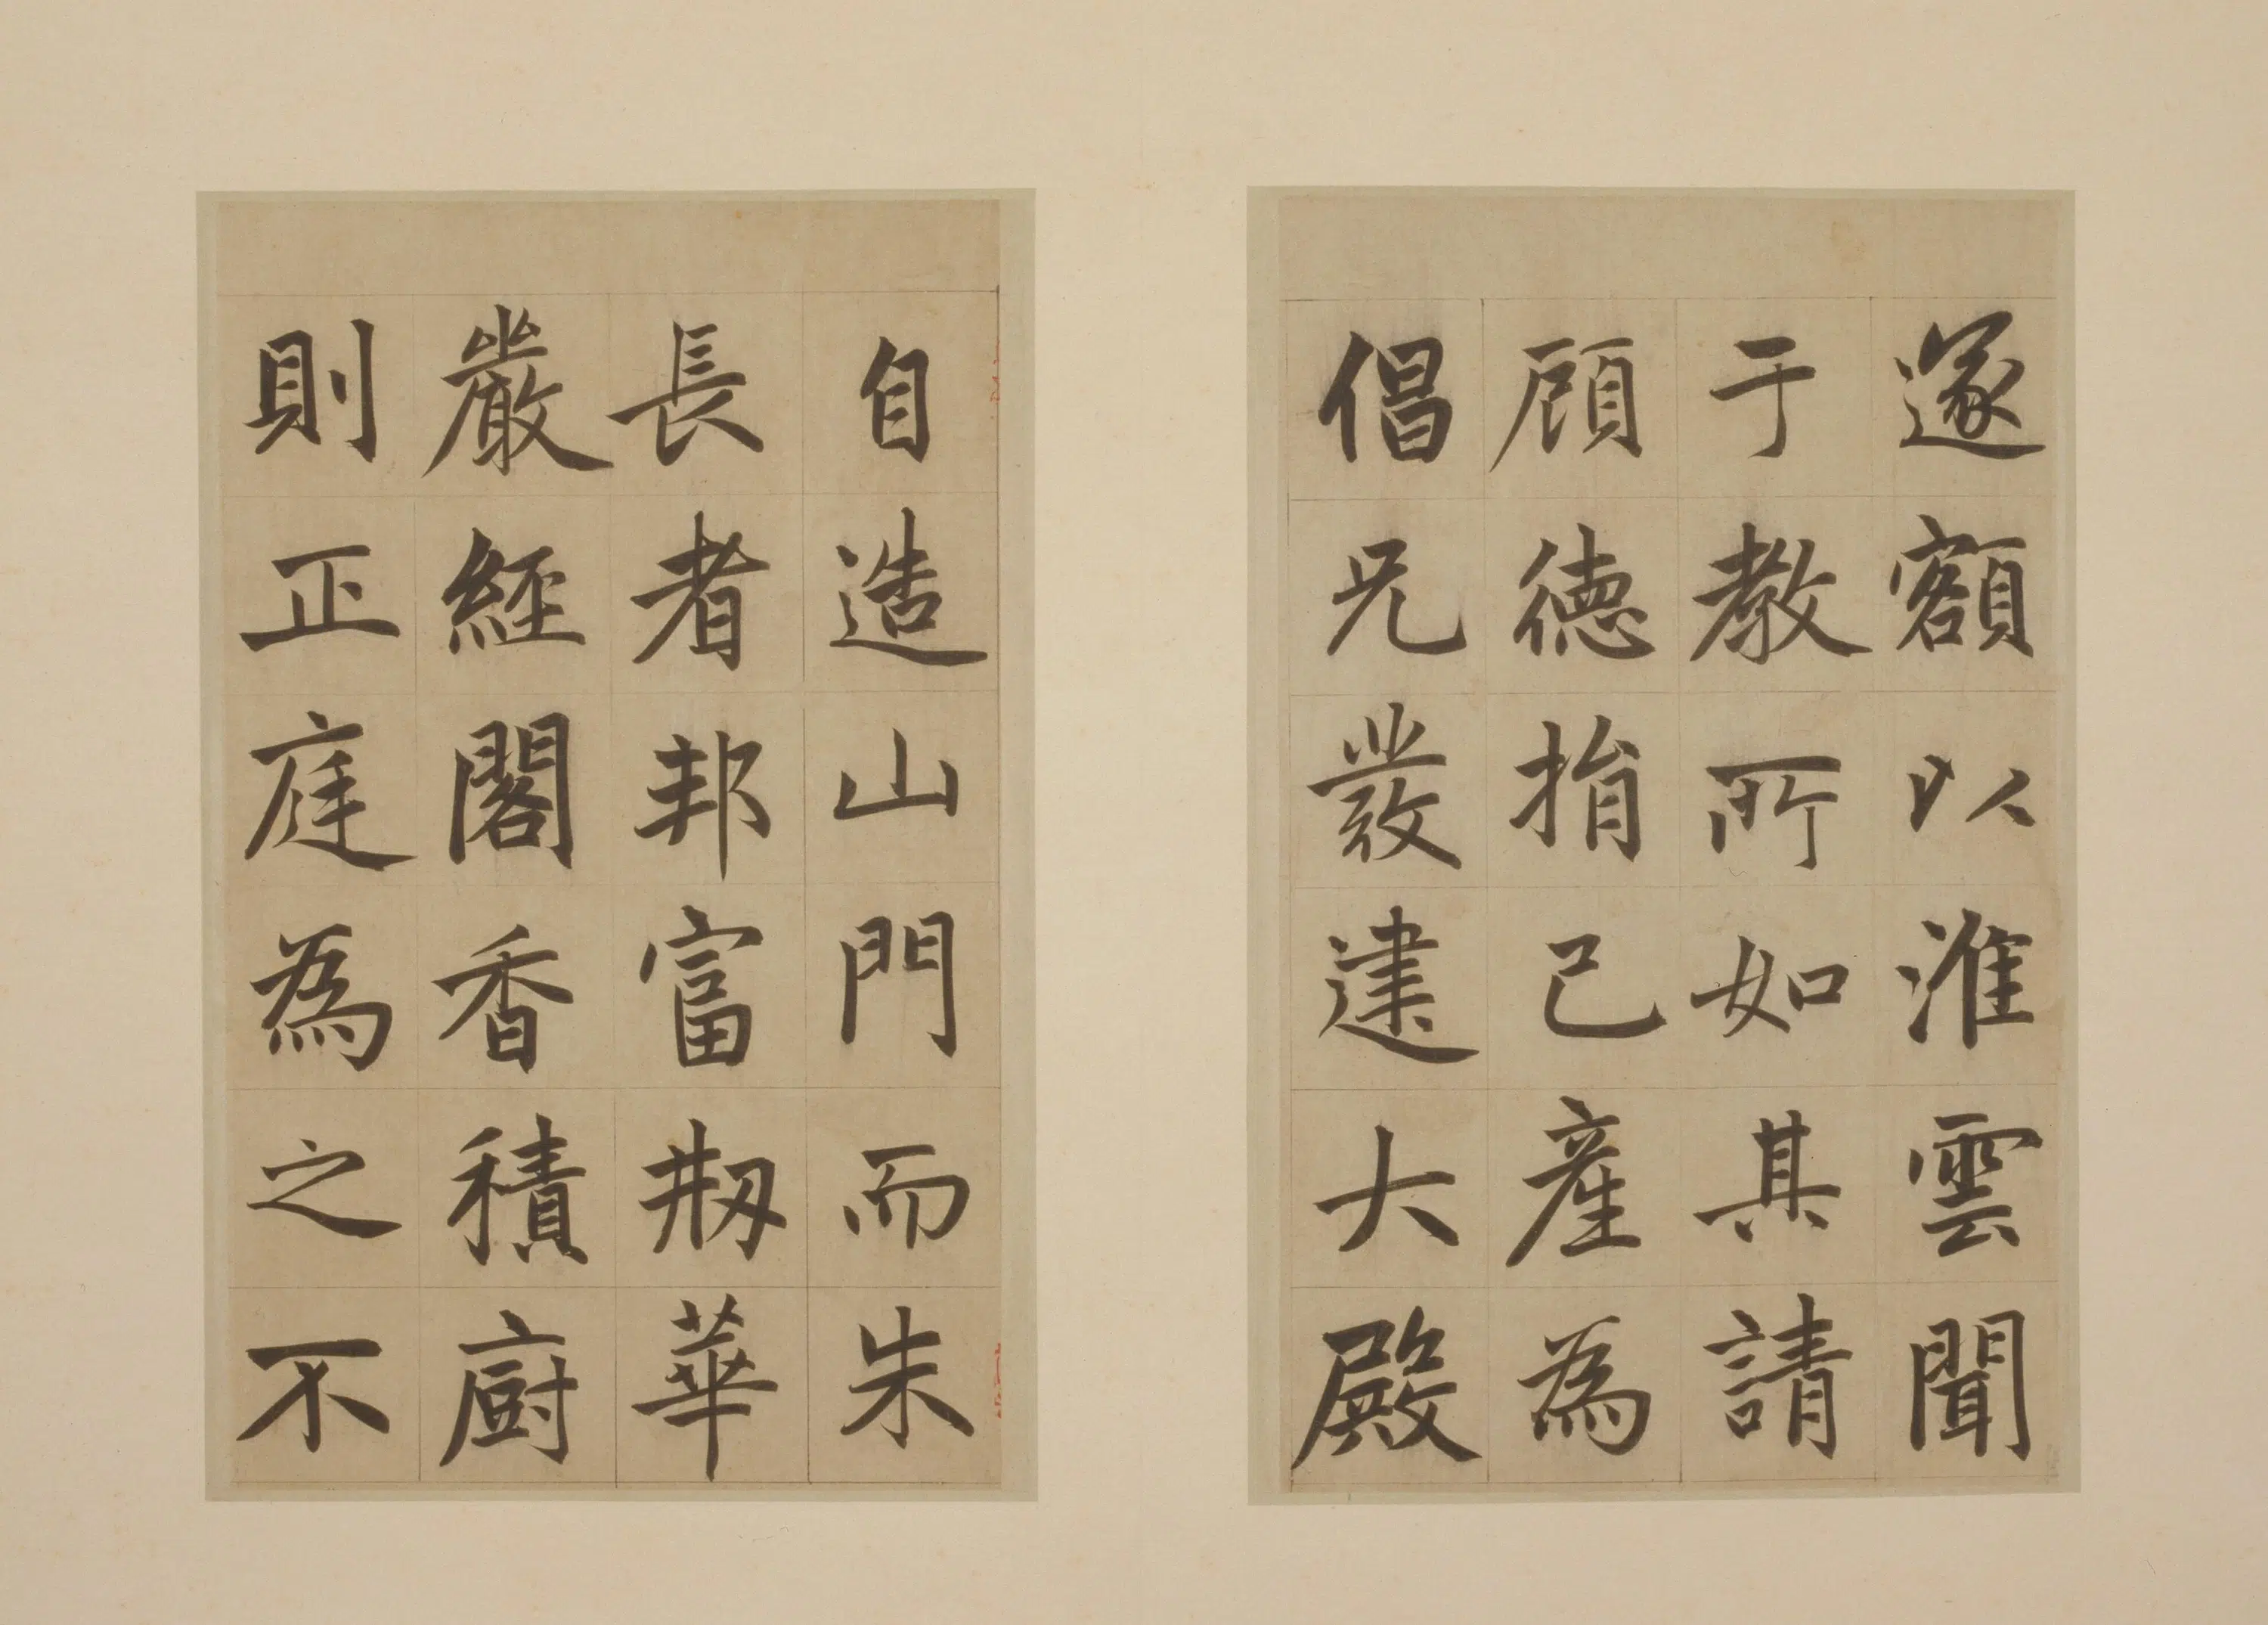 遂額以淮雲聞
于教所如其請
顧德捐己産為
倡兄發建大殿
自造山門而朱
長者邦富剏華
嚴經閣香積廚
則正庭為之不